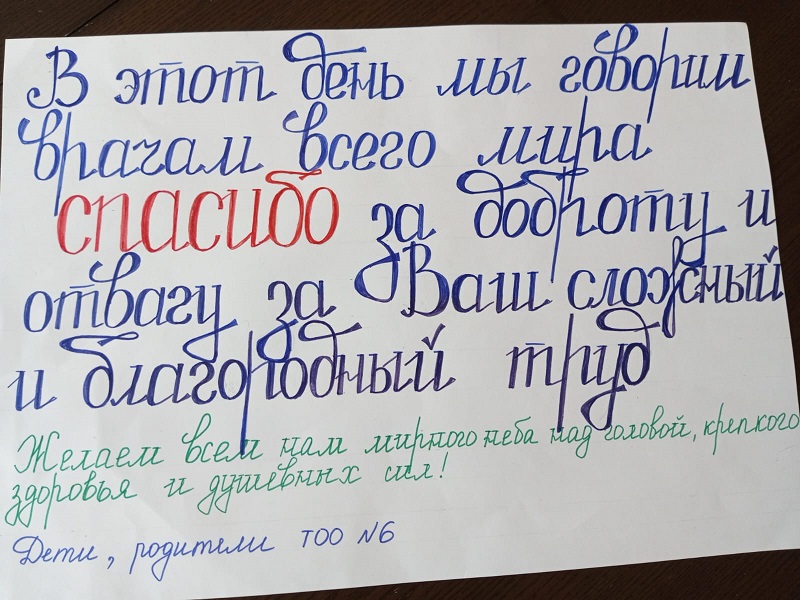 В этот день мы говорим
врачам всего мира
спасибо за доброту и
отвагу за Ваш сложный
и благородный труд
Желаем всем нам мирного неба над головой, крепкого
здоровья и душевных сил!
Дети, родители ТОО №6